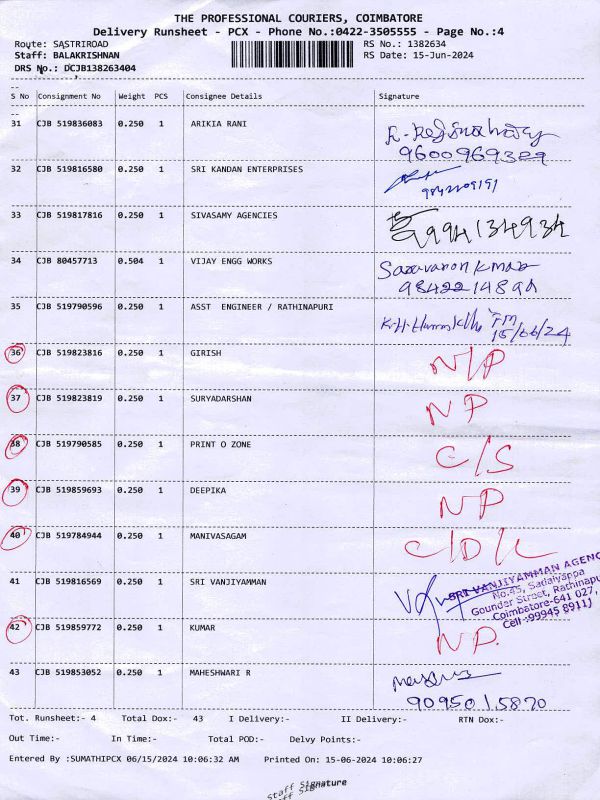 THE PROFESSIONAL COURIERS, COIMBATORE
Delivery Runsheet - PCX - Phone No.:0422-3505555 - Page No.:4
Route: SASTRIROAD RS No.: 1382634
Staff: BALAKRISHNAN RS Date: 15-Jun-2024
DRS No.: DCJB138263404
S No Consignment No Weight PCS Consignee Details Signature
31 CJB 519836083 0.250 1 ARIKIA RANI
9600969329
32 CJB 519816580 0.250 1 SRI KANDAN ENTERPRISES
33 CJB 519817816 0.250 1 SIVASAMY AGENCIES
9994134934
34 CJB 80457713 0.504 1 VIJAY ENGG WORKS
35 CJB 519790596 0.250 1 ASST ENGINEER / RATHINAPURI
15/06/24
36 CJB 519823816 0.250 1 GIRISH N/P
37 CJB 519823819 0.250 1 SURYADARSHAN NP
38 CJB 519790585 0.250 1 PRINT O ZONE C/S
39 CJB 519859693 0.250 1 DEEPIKA NP
40 CJB 519784944 0.250 1 MANIVASAGAM C/D/L
41 CJB 519816569 0.250 1 SRI VANJIYAMMAN
SRI VANJIYAMMAN AGENC
No.45, Sadaiyappa
Gounder Street, Rathinapu
Coimbatore-641 027,
Cell :99945 8911
42 CJB 519859772 0.250 1 KUMAR NP.
43 CJB 519853052 0.250 1 MAHESHWARI R
9095015870
Tot. Runsheet:- 4 Total Dox:- 43 I Delivery:- II Delivery:- RTN Dox:-
Out Time:- In Time:- Total POD:- Delvy Points:-
Entered By :SUMATHIPCX 06/15/2024 10:06:32 AM Printed On: 15-06-2024 10:06:27
Staff Signature